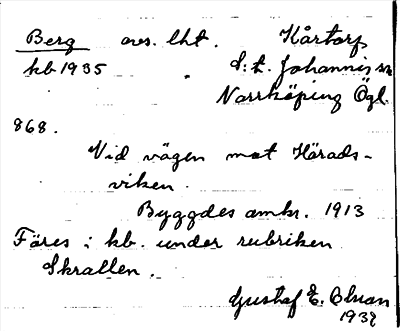 Berg avs. lht. Kårtorp
kb 1935 S:t. Johannis sn
Norrköping Ögl.
868.
Vid vägen mot Härads-
viken.
Byggdes omkr. 1913
Föres i kb. under rubriken
Skrallen.
Gustaf E. Blman
1939